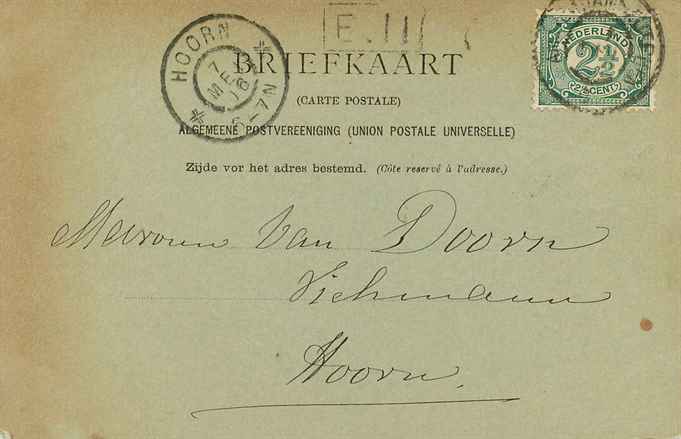 E. II
HOORN
7
ME
6-7N
NEDERLAND
2½
(2½ CENT)
BRIEFKAART
(CARTE POSTALE)
ALGEMEENE POSTVEREENIGING (UNION POSTALE UNIVERSELLE)
Zijde vor het adres bestemd. (Côte reservé à l'adresse.)
Mevrouw Van Doorn
Hoorn.